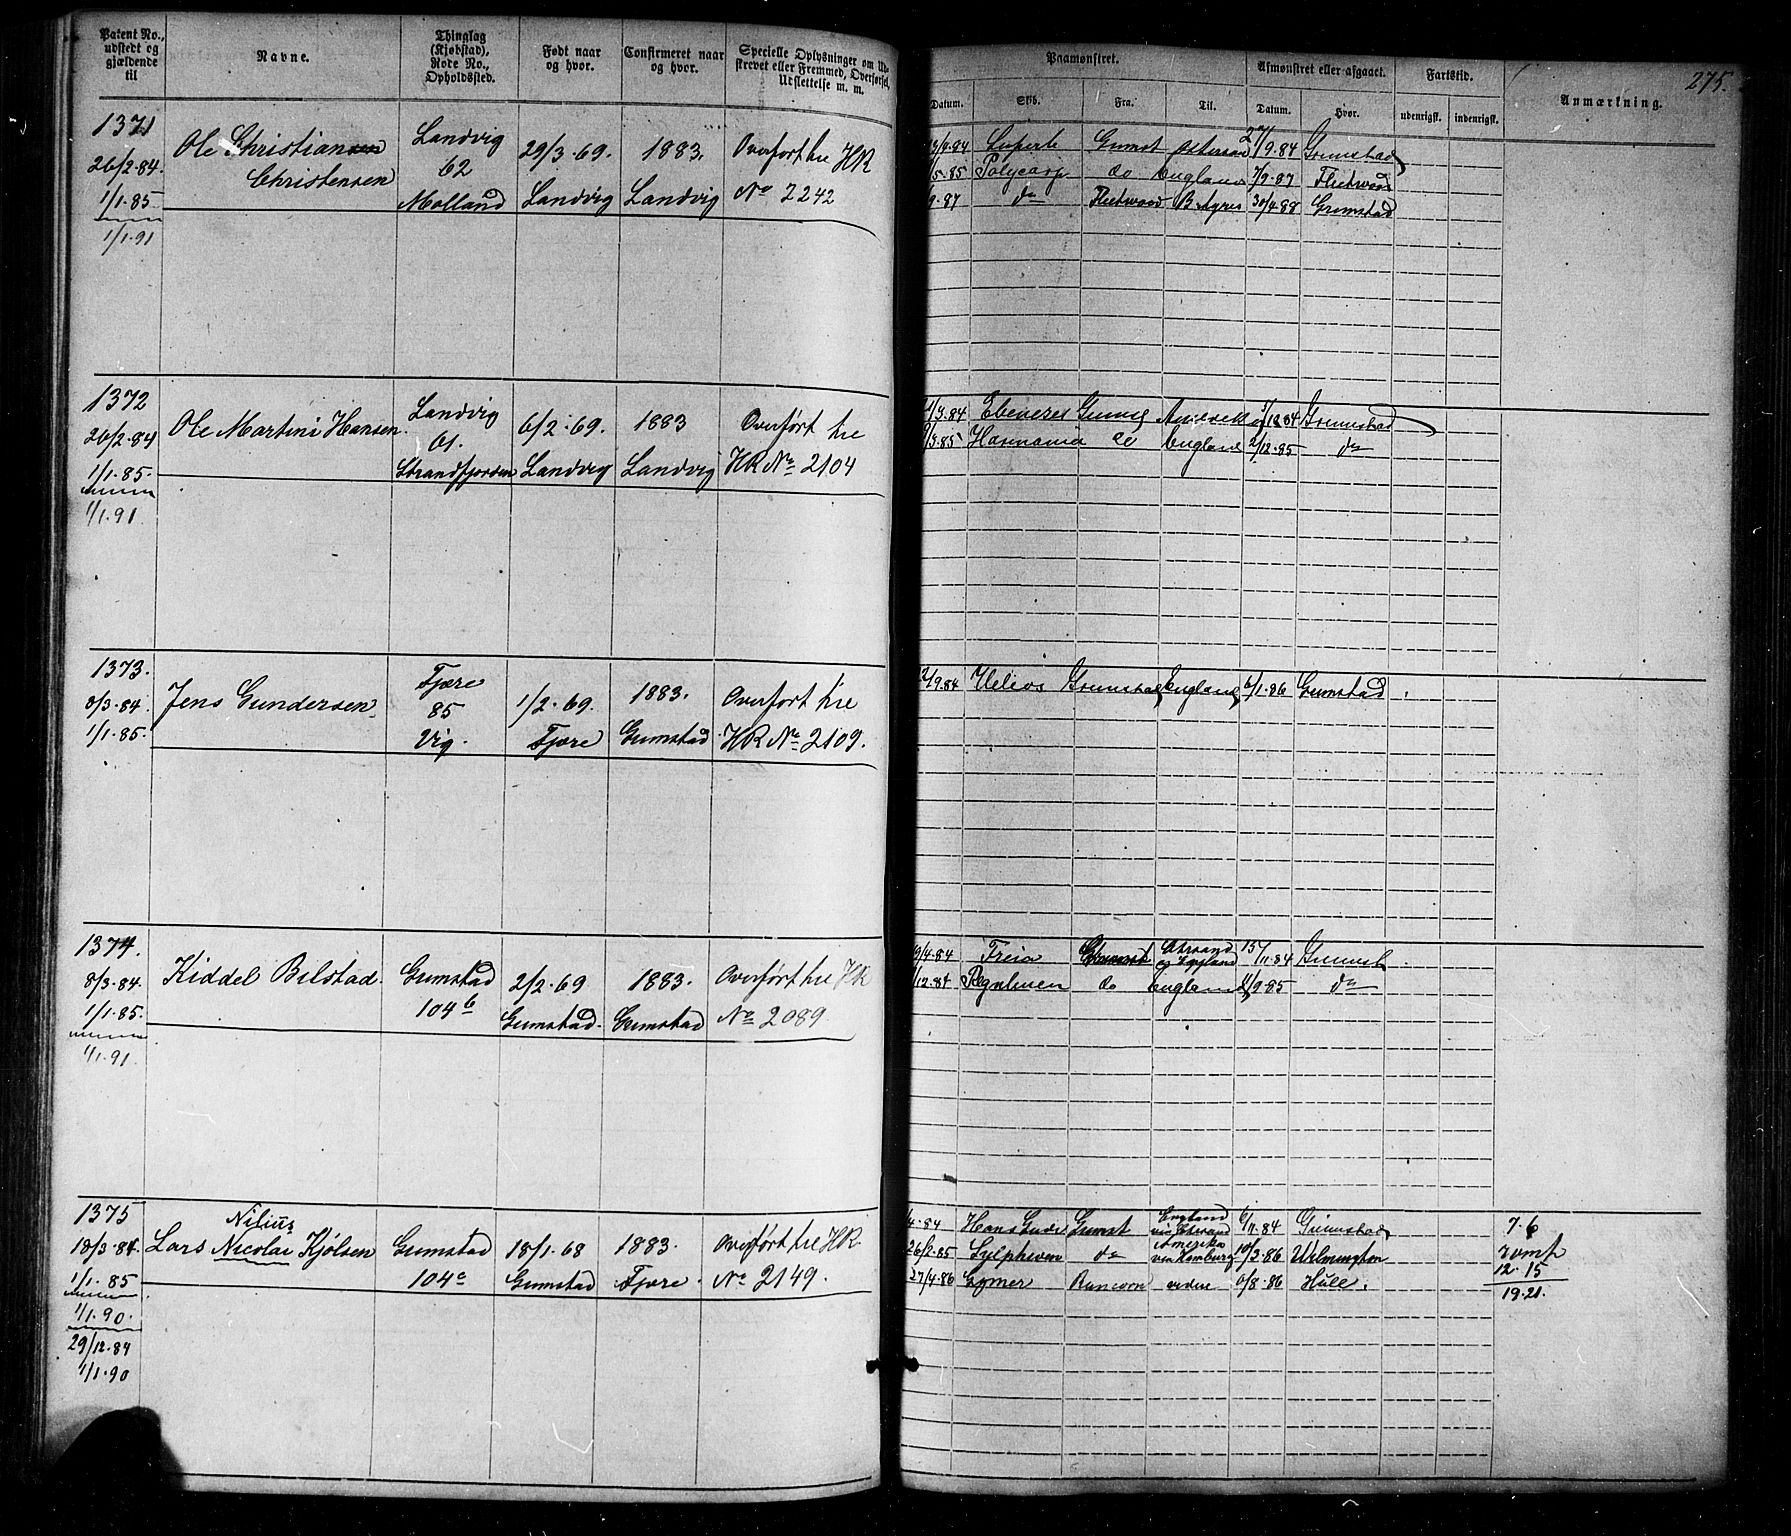 275.
Patent No., udstedt og gjældende til
Navne.
Thinglag (Kjøbstad), Rode No., Opholdssted.
Født naar og hvor.
Confirmeret naar og hvor.
Specielle Oplysninger om Udskrevet eller Fremmed, Overførsel, Udslettelse m. m.
Paamønstret.
Afmønstret eller afgaaet.
Fartstid.
Anmærkning.
Datum.
Skib.
Fra.
Til.
Datum.
Hvor.
udenrigsk.
indenrigsk.
1371
26/2.84.
1/1.85
1/1.91
Ole Christiansen
Christensen
Landvig
62
Molland
29/3.69.
Landvig
1883.
Landvig
Overført til HR
No 2242
Grimstad
5.85 Polycarp do England 7/9.87 Fleetwood
9.87 do Fleetwood B. Ayres 30/4.88 Grimstad
1372
26/2.84
1/1.85
1/1.91
Ole Martini Hansen
Landvig
61.
Strandfjorden
6/2.69.
Landvig
1883
Landvig
Overført til
HR No 2104
Grimstad
England 2/12.85 do
1373.
8/3.84.
1/1.85.
Jens Gundersen
Fjære
85
Vig.
1/2.69.
Fjære
1883.
Grimstad
Overført til
HR No 2109.
9.84 Helios Grimstad England 6/1.86 Grimstad
1374.
8/3.84.
1/1.85.
1/1.91
Kiddel Bilstad.
Grimstad
104 b
2/2.69
Grimstad.
1883.
Grimstad
Overført til HR
No 2089.
9/4.84 Freia
15/11.84 Grimst
12.84
do England
9.85 do
1375
18/3.84.
1/1.85
1/1.90.
29/12.84
1/1.90
Nilius
Lars Nicolai Kjölsen
Grimstad
104 c
18/1.68
Grimstad
1883.
Fjære
Overført til HR
No 2149.
4.84 Grimst England 6/11.84 Grimstad
26/2.85 Sylphiden do Amerika via Hamburg 10/3.86 Wilmington
27/4.86 Gymer Runcorn videre 6/8.86 Hull.
7.6
12.15
19.21.